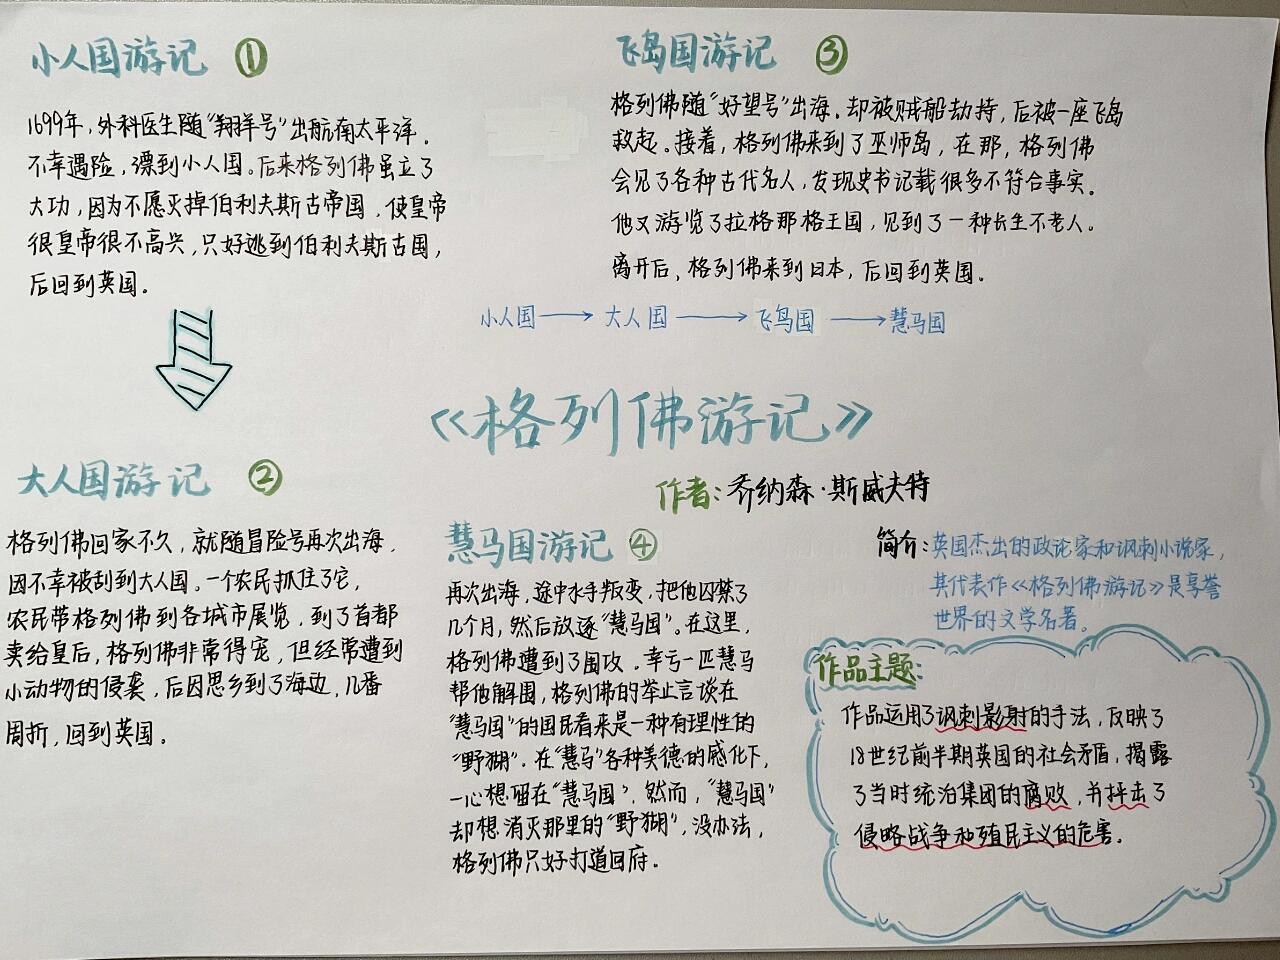 小人国游记 ①
1699年，外科医生随“翔羊号”出航南太平洋。
不幸遇险，漂到小人国。后来格列佛虽立了
大功，因为不愿灭掉伯利夫斯古帝国，使皇帝
很皇帝很不高兴，只好逃到伯利夫斯古国，
后回到英国。
大人国游记 ②
格列佛回家不久，就随冒险号再次出海，
因不幸被刮到大人国。一个农民抓住了它，
农民带格列佛到各城市展览，到了首都
卖给皇后，格列佛非常得宠，但经常遭到
小动物的侵袭，后因思乡到了海边，几番
周折，回到英国。
飞岛国游记 ③
格列佛随“好望号”出海，却被贼船劫持，后被一座飞岛
救起。接着，格列佛来到了巫师岛，在那，格列佛
会见了各种古代名人，发现史书记载很多不符合事实。
他又游览了拉格那格王国，见到了一种长生不老人。
离开后，格列佛来到日本，后回到英国。
小人国 → 大人国 → 飞鸟国 → 慧马国
《格列佛游记》
作者：乔纳森·斯威夫特
慧马国游记 ④
再次出海，途中水手叛变，把他囚禁了
几个月，然后放逐“慧马国”。在这里，
格列佛遭到了围攻，幸亏一匹慧马
帮他解围，格列佛的举止言谈在
“慧马国”的国民看来是一种有理性的
“野猢”，在“慧马”各种美德的感化下，
一心想留在“慧马国”，然而，“慧马国”
却想消灭那里的“野猢”，没办法，
格列佛只好打道回府。
简介：英国杰出的政论家和讽刺小说家，
其代表作《格列佛游记》是享誉
世界的文学名著。
作品主题：
作品运用了讽刺影射的手法，反映了
18世纪前半期英国的社会矛盾，揭露
了当时统治集团的腐败，并抨击了
侵略战争和殖民主义的危害。